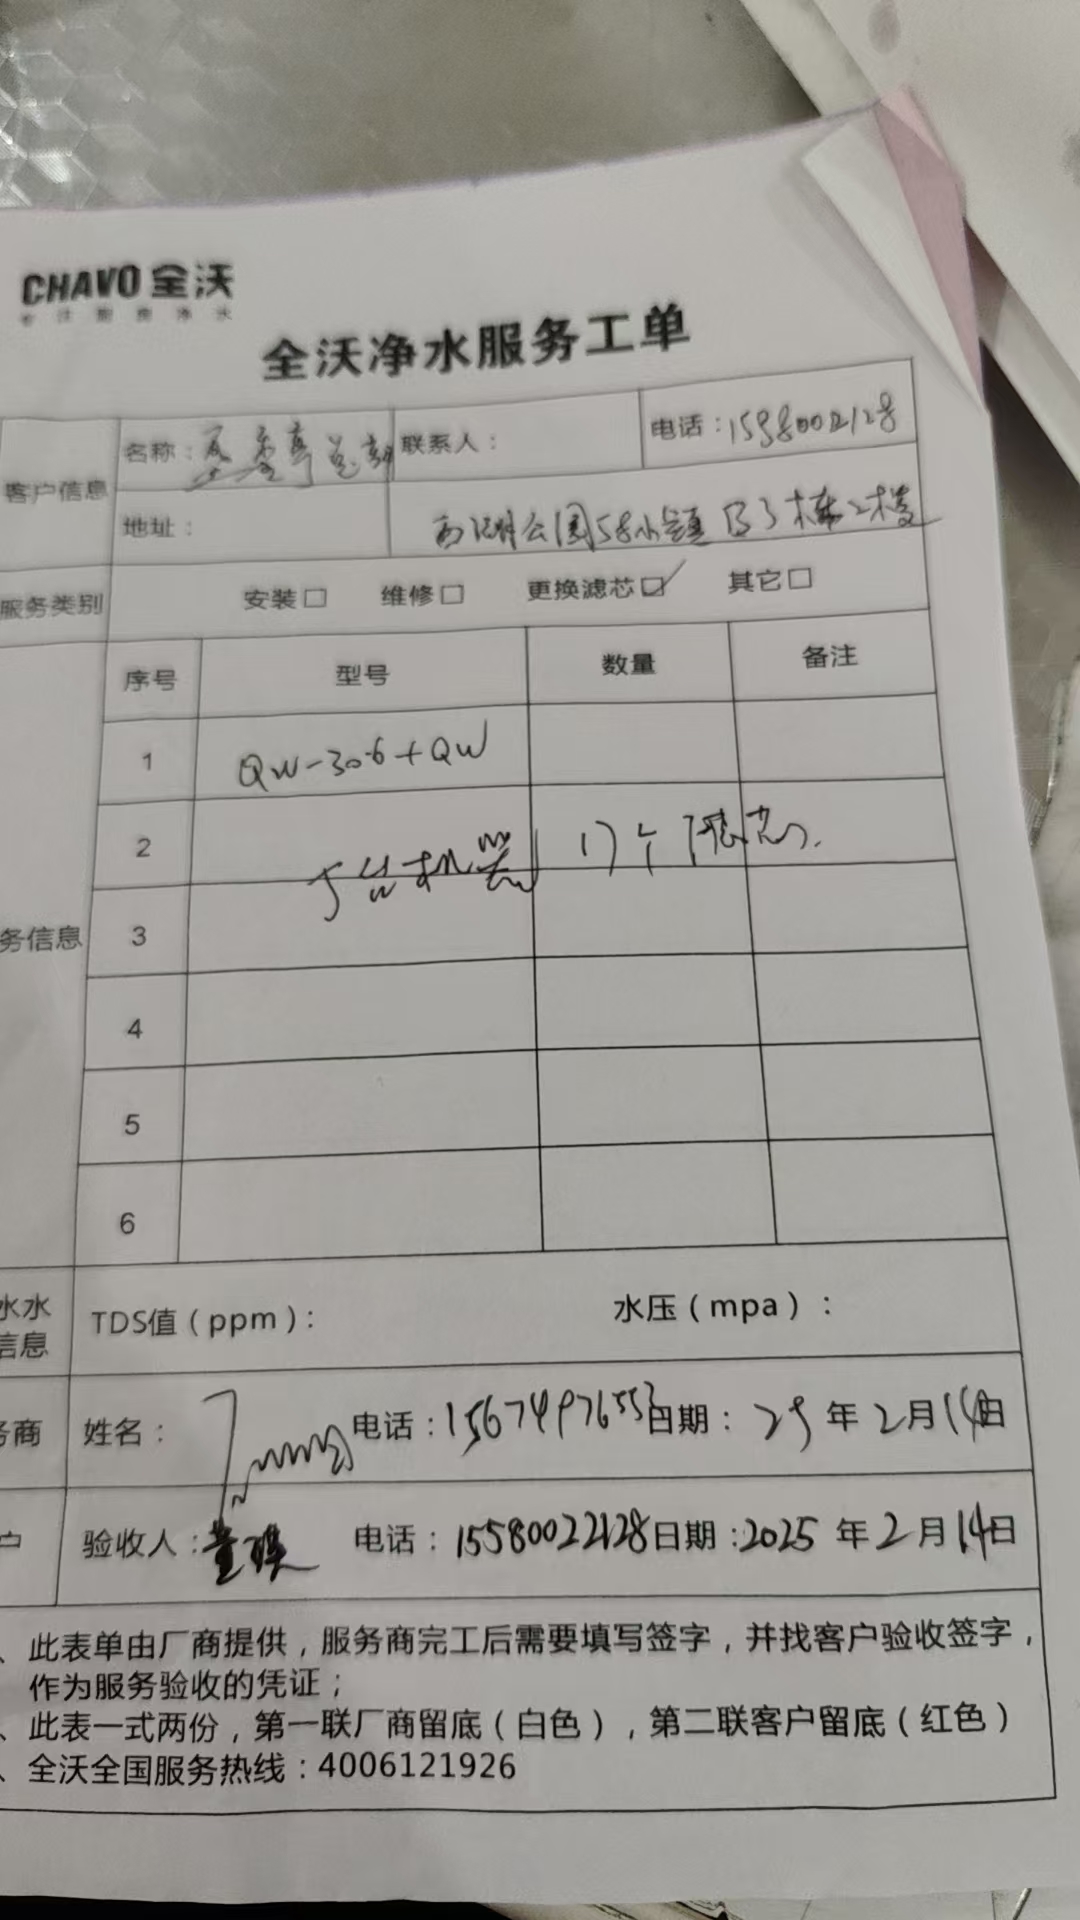 CHAVO 全沃
全沃净水服务工单
客户信息
名称： 总部 联系人： 电话：
地址： 西湖公园58小镇B3栋2楼
服务类别 安装□ 维修□ 更换滤芯☑ 其它□
序号 型号 数量 备注
1 QW-306+QW
2 5台机器 17个滤芯.
务信息 3
4
5
6
水水 TDS值（ppm）： 水压（mpa）：
信息
务商 姓名： 电话： 日期：25年2月14日
户 验收人：董 电话：15580022128 日期：2025年2月14日
、此表单由厂商提供，服务商完工后需要填写签字，并找客户验收签字，
作为服务验收的凭证；
、此表一式两份，第一联厂商留底（白色），第二联客户留底（红色）
、全沃全国服务热线：4006121926